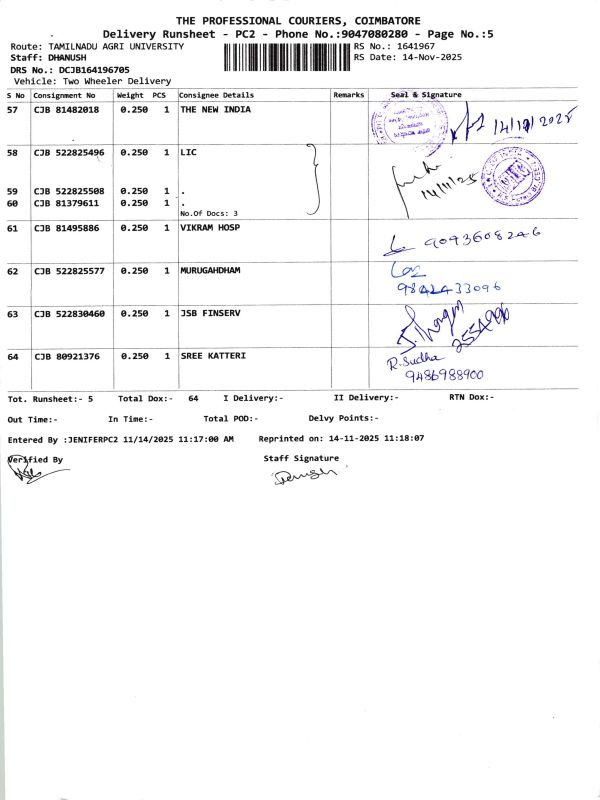 THE PROFESSIONAL COURIERS, COIMBATORE
Delivery Runsheet - PC2 - Phone No.:9047080280 - Page No.:5
Route: TAMILNADU AGRI UNIVERSITY RS No.: 1641967
Staff: DHANUSH RS Date: 14-Nov-2025
DRS No.: DCJB164196705
Vehicle: Two Wheeler Delivery
S No Consignment No Weight PCS Consignee Details Remarks Seal & Signature
57 CJB 81482018 0.250 1 THE NEW INDIA
58 CJB 522825496 0.250 1 LIC
14/11/25
59 CJB 522825508 0.250 1 .
60 CJB 81379611 0.250 1 .
No.Of Docs: 3
61 CJB 81495886 0.250 1 VIKRAM HOSP
9093608246
62 CJB 522825577 0.250 1 MURUGAHDHAM
63 CJB 522830460 0.250 1 JSB FINSERV
64 CJB 80921376 0.250 1 SREE KATTERI
R.Sudha
9486988900
Tot. Runsheet:- 5 Total Dox:- 64 I Delivery:- II Delivery:- RTN Dox:-
Out Time:- In Time:- Total POD:- Delvy Points:-
Entered By :JENIFERPC2 11/14/2025 11:17:00 AM Reprinted on: 14-11-2025 11:18:07
Verified By Staff Signature